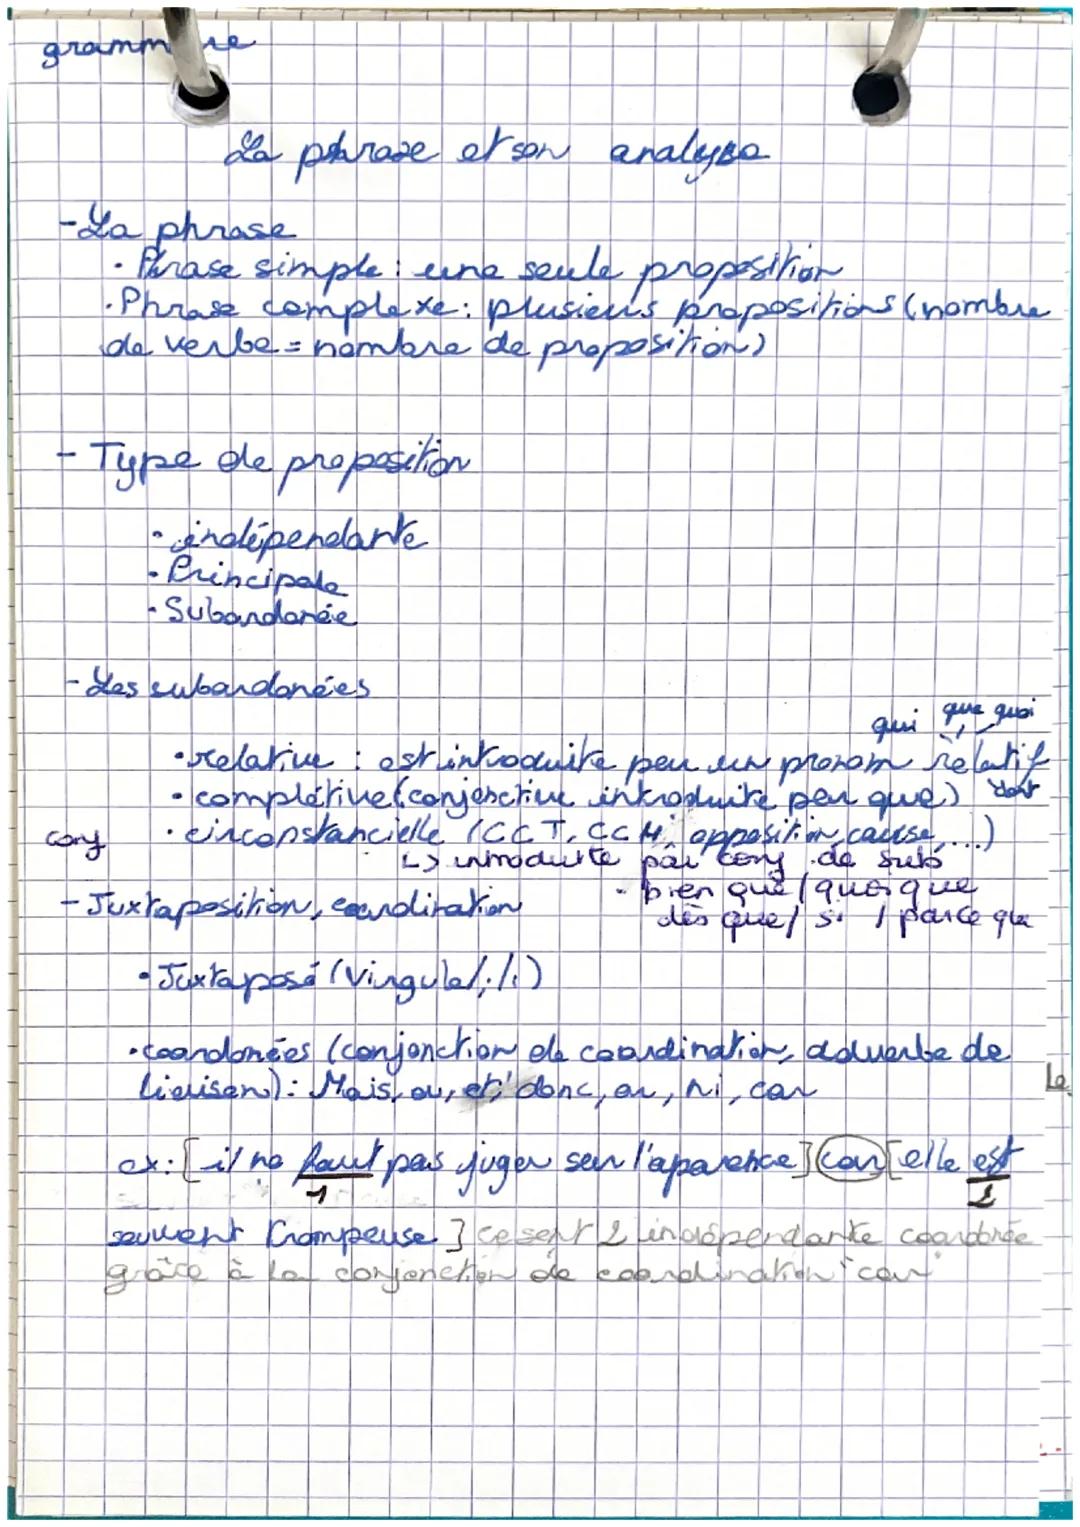 grammire
La phrase et son analyse
- La phrase
• Phrase simple : une seule proposition
• Phrase complexe : plusieurs propositions (nombre
de verbe = nombre de proposition)
- Type de proposition
• indépendante
• Principale
• Subordonée
- Les subordonées
qui que quoi
• relative : est introduite par un pronom relatif
dont
• complétive (conjonctive introduite par que)
conj
• circonstancielle (CCT, CCM, opposition, cause, ...)
↳ introduite par conj de sub
- bien que / quoi que
dès que / si / parce que
- Juxtaposition, coordination
• Juxtaposé (Virgule/;/:)
• coordonées (conjonction de coordination, adverbe de
liaison) : Mais, ou, et, donc, or, ni, car
Le
ex: [il ne faut pas juger sur l'aparence] car [elle est
1 2
souvent trompeuse] ce sont 2 indépendante coordonée
grâce à la conjonction de coordination "car"